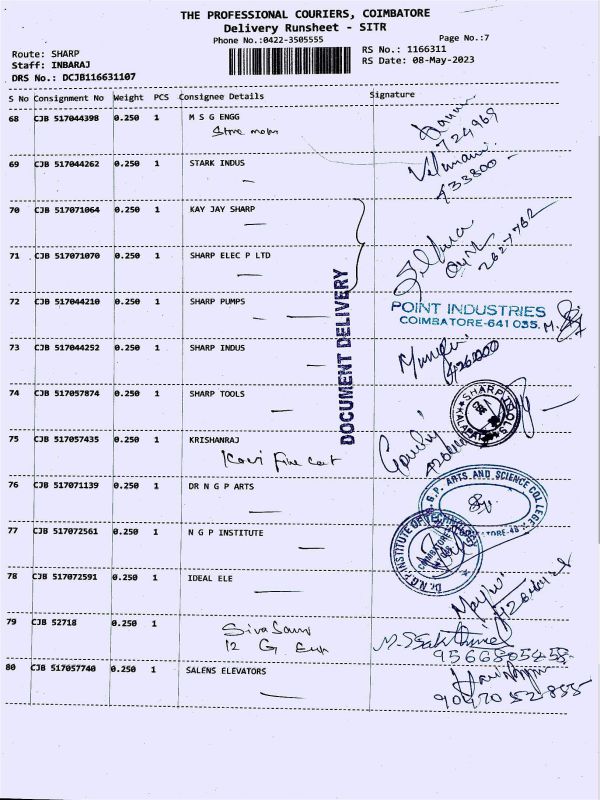 THE PROFESSIONAL COURIERS, COIMBATORE
Delivery Runsheet - SITR
Phone No.:0422-3505555 Page No.:7
Route: SHARP RS No.: 1166311
Staff: INBARAJ RS Date: 08-May-2023
DRS No.: DCJB116631107
S No Consignment No Weight PCS Consignee Details Signature
68 CJB 517044398 0.250 1 M S G ENGG
724969
69 CJB 517044262 0.250 1 STARK INDUS
433800
70 CJB 517071064 0.250 1 KAY JAY SHARP
71 CJB 517071070 0.250 1 SHARP ELEC P LTD
2627762
DOCUMENT DELIVERY
72 CJB 517044210 0.250 1 SHARP PUMPS
POINT INDUSTRIES
COIMBATORE-641 035.
73 CJB 517044252 0.250 1 SHARP INDUS
74 CJB 517057874 0.250 1 SHARP TOOLS
SHARP TOOLS
75 CJB 517057435 0.250 1 KRISHANRAJ
76 CJB 517071139 0.250 1 DR N G P ARTS
G.P. ARTS AND SCIENCE COLLEGE
77 CJB 517072561 0.250 1 N G P INSTITUTE
Dr. N.G.P. INSTITUTE OF TECHNOLOGY
COIMBATORE
78 CJB 517072591 0.250 1 IDEAL ELE
79 CJB 52718 0.250 1
Siva Sami
12 G
9566805458
80 CJB 517057740 0.250 1 SALENS ELEVATORS